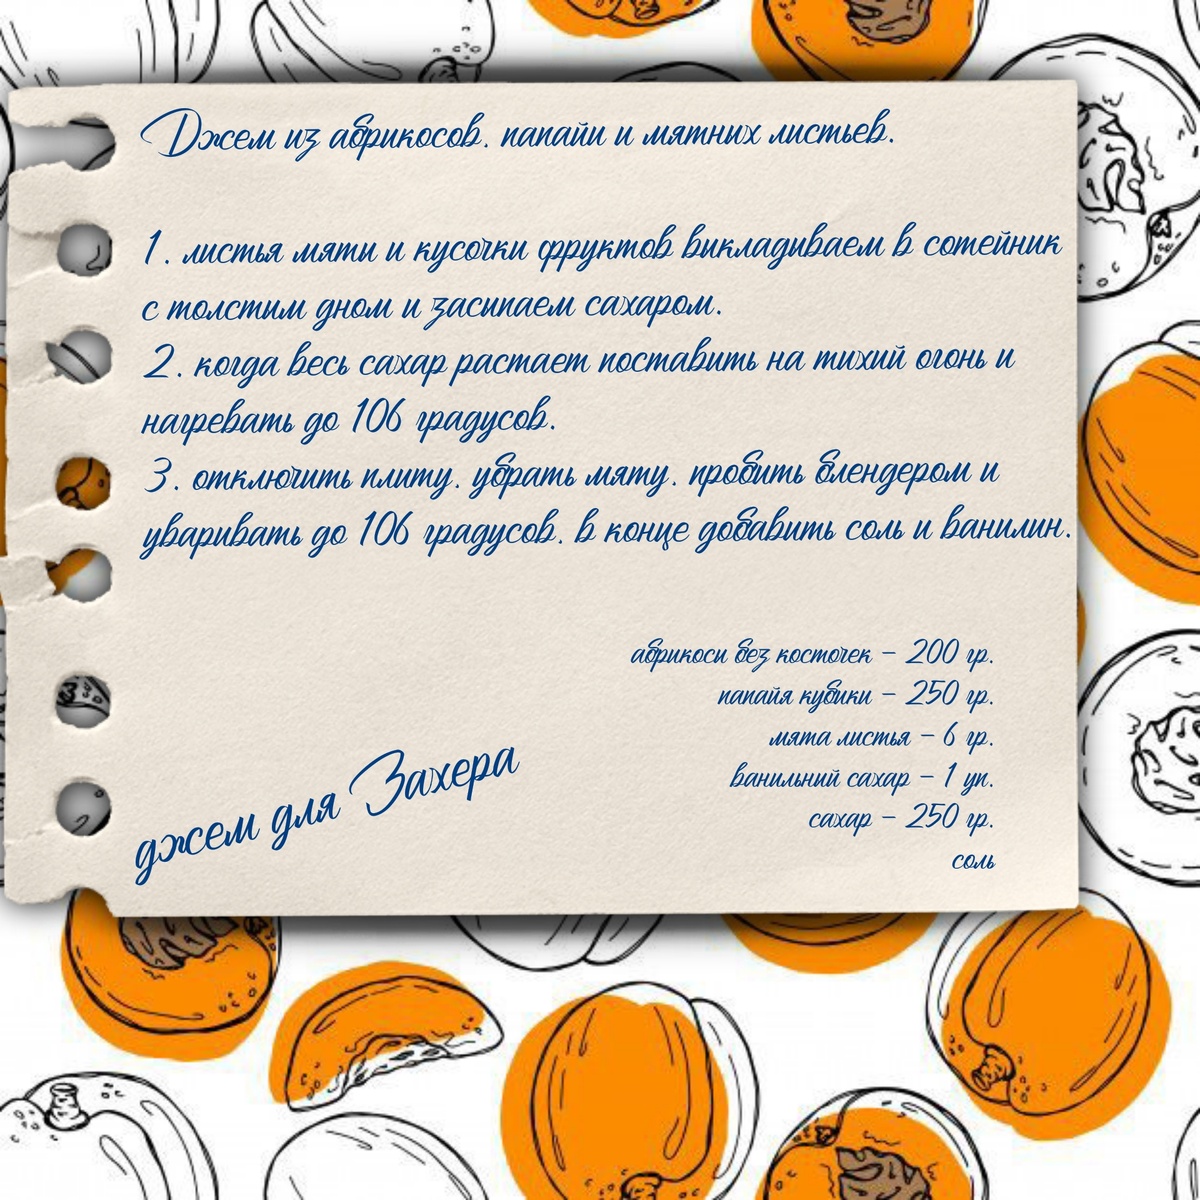 Джем из абрикосов. папайи и мятних листьев.
1. листья мяти и кусочки фруктов викладиваем в сотейник
с толстим дном и засипаем сахаром.
2. когда весь сахар растает поставить на тихий огонь и
нагревать до 106 градусов.
3. отключить плиту. убрать мяту. пробить блендером и
уваривать до 106 градусов. в конце добавить соль и ванилин.
абрикоси без косточек - 200 гр.
папайя кубики - 250 гр.
мята листья - 6 гр.
ванильний сахар - 1 уп.
сахар - 250 гр.
соль
джем для Захера